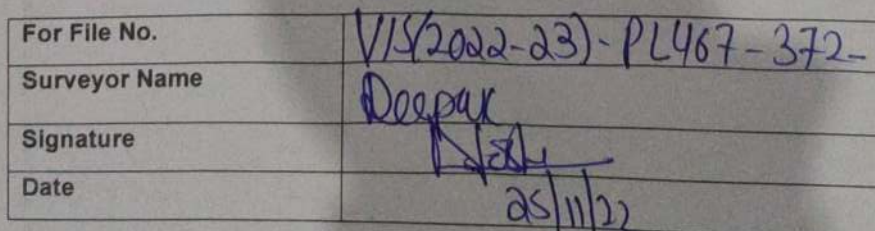 For File No. VIS(2022-23)-PL467-372-
Surveyor Name Deepak
Signature
Date 25/11/22